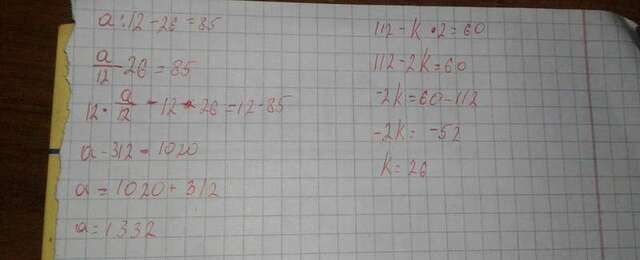 a:12-26=85
a/12-26=85
12·a/12-12·26=12-85
a-312=1020
a=1020+312
a=1332
112-k·2=60
112-2k=60
-2k=60-112
-2k=-52
k=26